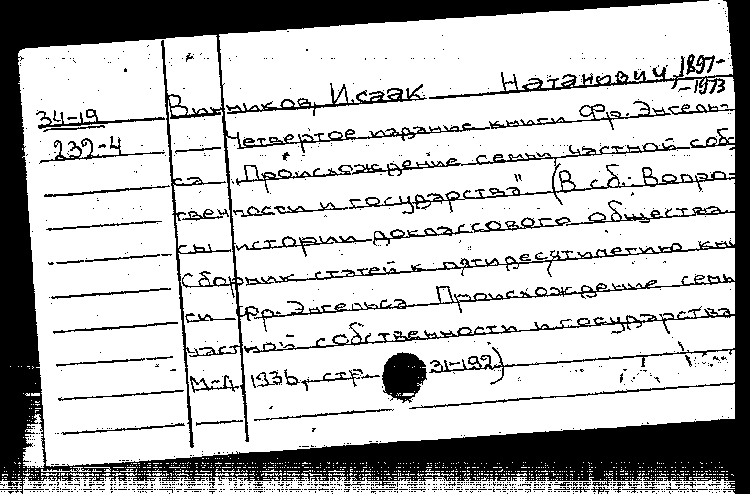 34-19
239-4
Винников, Исаак Натанович, 1897-
-1973
Четвертое издание книги Фр. Энгель-
са „Происхождение семьи, частной собс
твенности и государства" (В сб.: Вопро-
сы истории доклассового общества.
Сборник статей к пятидесятилетию кни
ги Фр. Энгельса Происхождение семь
частной собственности и государства
М-Л, 1936, стр. 31-192)